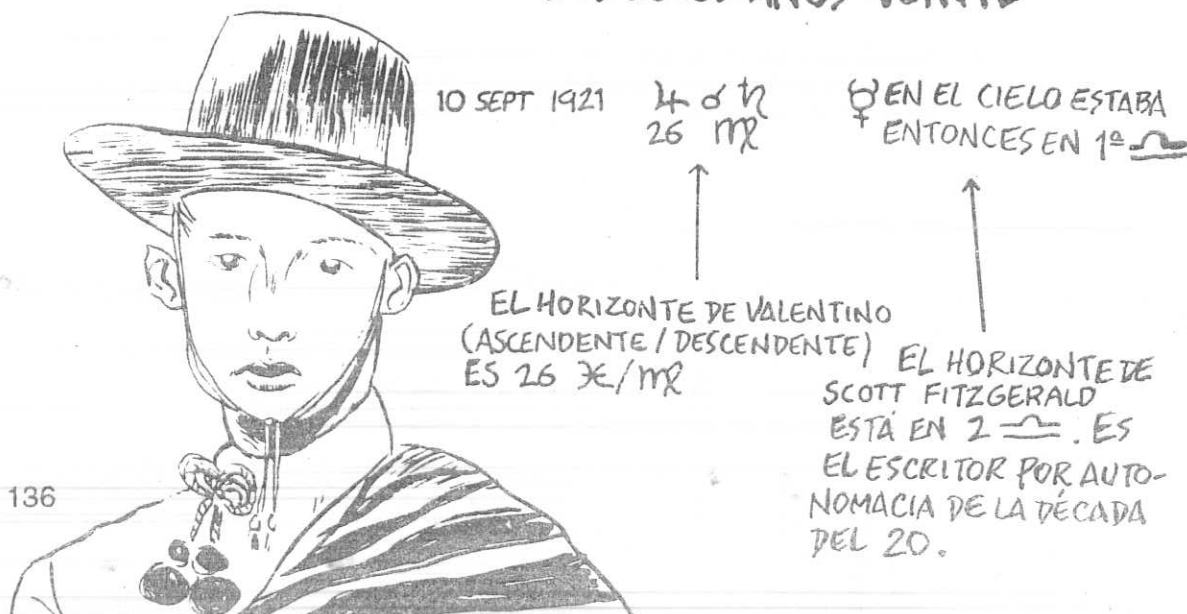 AÑOS VEINTE
10 SEPT 1921 ♃ ☌ ♄
26 ♍
☿ EN EL CIELO ESTABA
ENTONCES EN 1º ♎
EL HORIZONTE DE VALENTINO
(ASCENDENTE / DESCENDENTE)
ES 26 ♓/♍
EL HORIZONTE DE
SCOTT FITZGERALD
ESTÁ EN 2 ♎. ES
EL ESCRITOR POR AUTO-
NOMACIA DE LA DÉCADA
DEL 20.
136